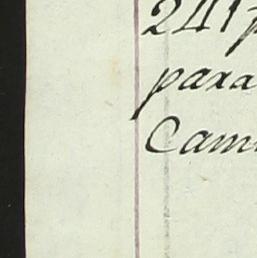 241
para
Cam